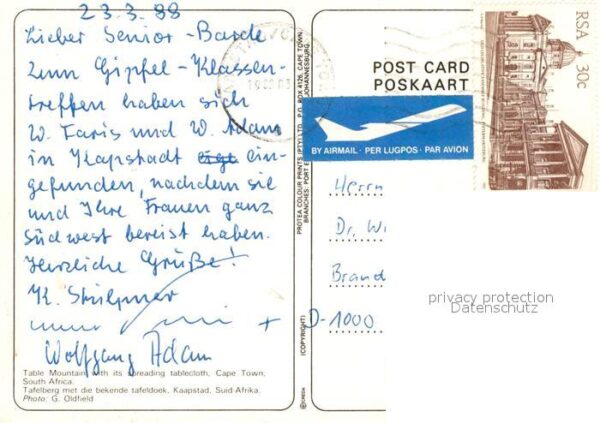 23.3.88
Lieber Senior-Barde
Zum Gipfel-Klassen-
treffen haben sich
W. Faris und W. Adam
in Kapstadt ein-
gefunden, nachdem sie
und Ihre Frauen ganz
Südwest bereist haben.
Herzliche Grüße!
K.
Wolfgang Adam
Table Mountain with its spreading tablecloth, Cape Town,
South Africa.
Tafelberg met die bekende tafeldoek, Kaapstad, Suid-Afrika.
Photo: G. Oldfield
PROTEA COLOUR PRINTS (PTY) LTD. P.O. BOX 4126, CAPE TOWN.
BRANCHES: PORT E JOHANNESBURG.
(COPYRIGHT)
POST CARD
POSKAART
BY AIRMAIL · PER LUGPOS · PAR AVION
RSA 30c
Herrn
Dr. Wi
Brand
D-1000
privacy protection
Datenschutz